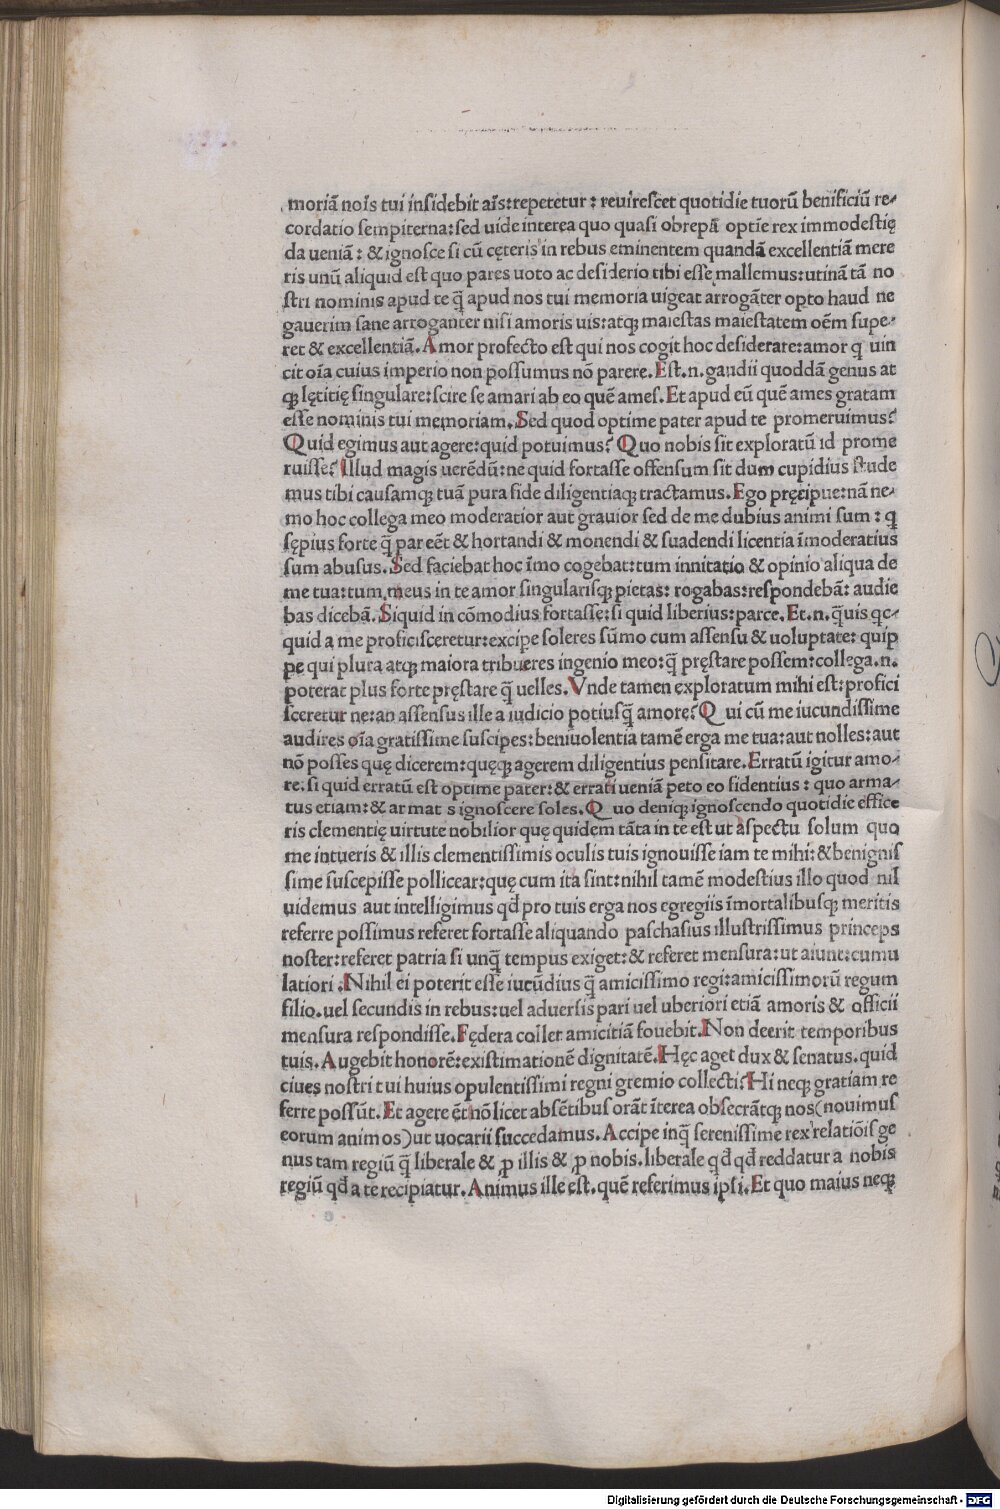 moriā noīs tui insidebit aīs:repetetur : reuirescet quotidie tuorū benificiū re-
cordatio sempiterna:sed uide interea quo quasi obrepā optīe rex immodestię
da ueniā : & ignosce si cū cęteris in rebus eminentem quandā excellentiā mere
ris unū aliquid est quo pares uoto ac desiderio tibi esse mallemus:utinā tā no
stri nominis apud te q̄ apud nos tui memoria uigeat arrogāter opto haud ne
gauerim sane arroganter nisi amoris uis:atqꝫ maiestas maiestatem oēm supe-
ret & excellentiā. Amor profecto est qui nos cogit hoc desiderare:amor q uin
cit oīa cuius imperio non possumus nō parere. Est.n. gaudii quoddā genus at
qꝫ lętitię singulare:scire se amari ab eo quē ames. Et apud eū quē ames gratam
esse nominis tui memoriam. Sed quod optime pater apud te promeruimus?
Quid egimus aut agere:quid potuimus? Quo nobis sit exploratū id prome
ruisse? Illud magis uerēdū:ne quid fortasse offensum sit dum cupidius stude
mus tibi causamqꝫ tuā pura fide diligentiaqꝫ tractamus. Ego pręcipue:nā ne-
mo hoc collega meo moderatior aut grauior sed de me dubius animi sum : q
sępius forte q̄ par eēt & hortandi & monendi & suadendi licentia īmoderatius
sum abusus. Sed faciebat hoc īmo cogebat:tum innitatio & opinio aliqua de
me tua:tum meus in te amor singularisqꝫ pietas: rogabas:respondebā: audie
bas dicebā. Siquid in cōmodius fortasse:si quid liberius:parce. Et.n. q̄uis qc-
quid a me proficisceretur:excipe soleres sūmo cum assensu & uoluptate: quip
pe qui plura atqꝫ maiora tribueres ingenio meo:q̄ pręstare possem:collega.n.
poterat plus forte pręstare q̄ uelles. Vnde tamen exploratum mihi est:profici
sceretur ne:an assensus ille a iudicio potiusq̄ amore? Q ui cū me iucundissime
audires oīa gratissime suscipes:beniuolentia tamē erga me tua:aut nolles:aut
nō posses quę dicerem:quęqꝫ agerem diligentius pensitare. Erratū igitur amo-
re.si quid erratū est optime pater:& errati ueniā peto eo fidentius : quo arma-
tus etiam:& armat s ignoscere soles. Q uo deniqꝫ ignoscendo quotidie effice
ris clementię uirtute nobilior quę quidem tāta in te est ut aspectu solum quo
me intueris & illis clementissimis oculis tuis ignouisse iam te mihi:&benignis
sime suscepisse pollicear:quę cum ita sint:nihil tamē modestius illo quod nil
uidemus aut intelligimus qđ pro tuis erga nos egregiis īmortalibusqꝫ meritis
referre possimus referet fortasse aliquando paschasius illustrissimus princeps
noster:referet patria si unq̄ tempus exiget:& referet mensura:ut aiunt:cumu
latiori .Nihil ei poterit esse iucūdius q̄ amicissimo regi:amicissimorū regum
filio.uel secundis in rebus:uel aduersis pari uel uberiori etiā amoris & officii
mensura respondisse. Fędera coīlet amicitiā fouebit.Non deerit temporibus
tuis. Augebit honorē:existimationē dignitatē.Hęc aget dux & senatus.quid
ciues nostri tui huius opulentissimi regni gremio collecti?Hi neqꝫ gratiam re
ferre possūt. Et agere ēt nō licet absētibus orāt īterea obsecrātqꝫ nos(nouimus
eorum animos)ut uocarii succedamus. Accipe inq̄ serenissime rex relatiōis ge
nus tam regiū q̄ liberale & ꝓ illis & ꝓ nobis.liberale qđ qđ reddatur a nobis
regiū qđ a te recipiatur. Animus ille est. quē referimus ipsi. Et quo maius neqꝫ
Digitalisierung gefördert durch die Deutsche Forschungsgemeinschaft - DFG